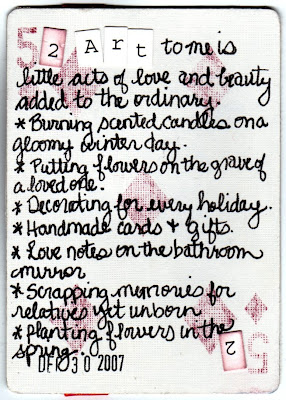 5 2 Art to me is
little acts of love and beauty
added to the ordinary.
* Burning scented candles on a
gloomy winter day.
* Putting flowers on the grave of
a loved one.
* Decorating for every holiday.
* Handmade cards & gifts.
* Love notes on the bathroom
mirror
* Scrapping memories for
relatives yet unborn
* Planting flowers in the
spring.
2 5
30 2007